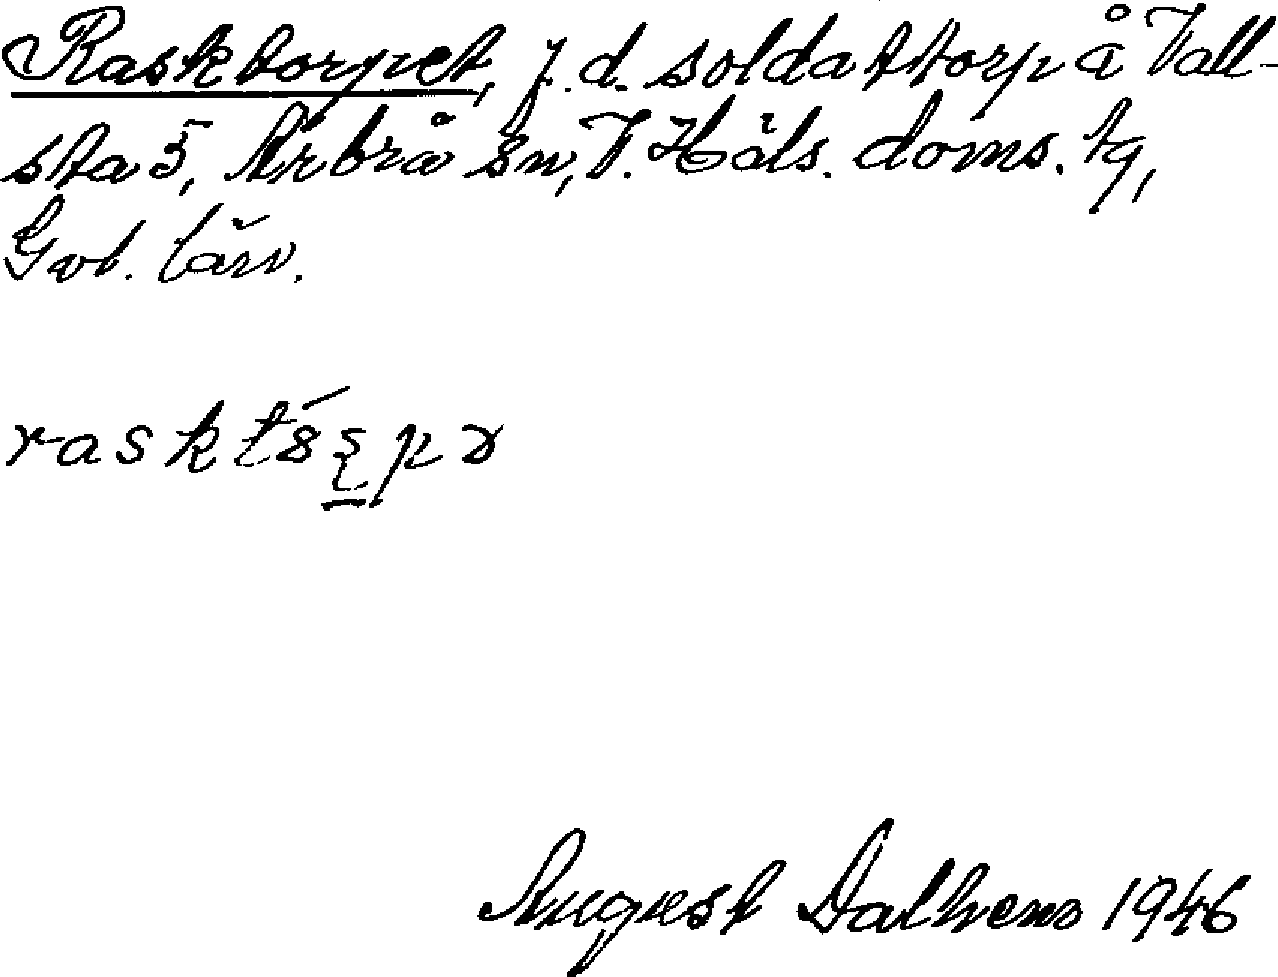 Rasktorpet, f. d. soldattorp å Vall-
sta 5, Arbrå sn, V. Häls. doms. tg,
Gvl. län.
August Dalhem 1946